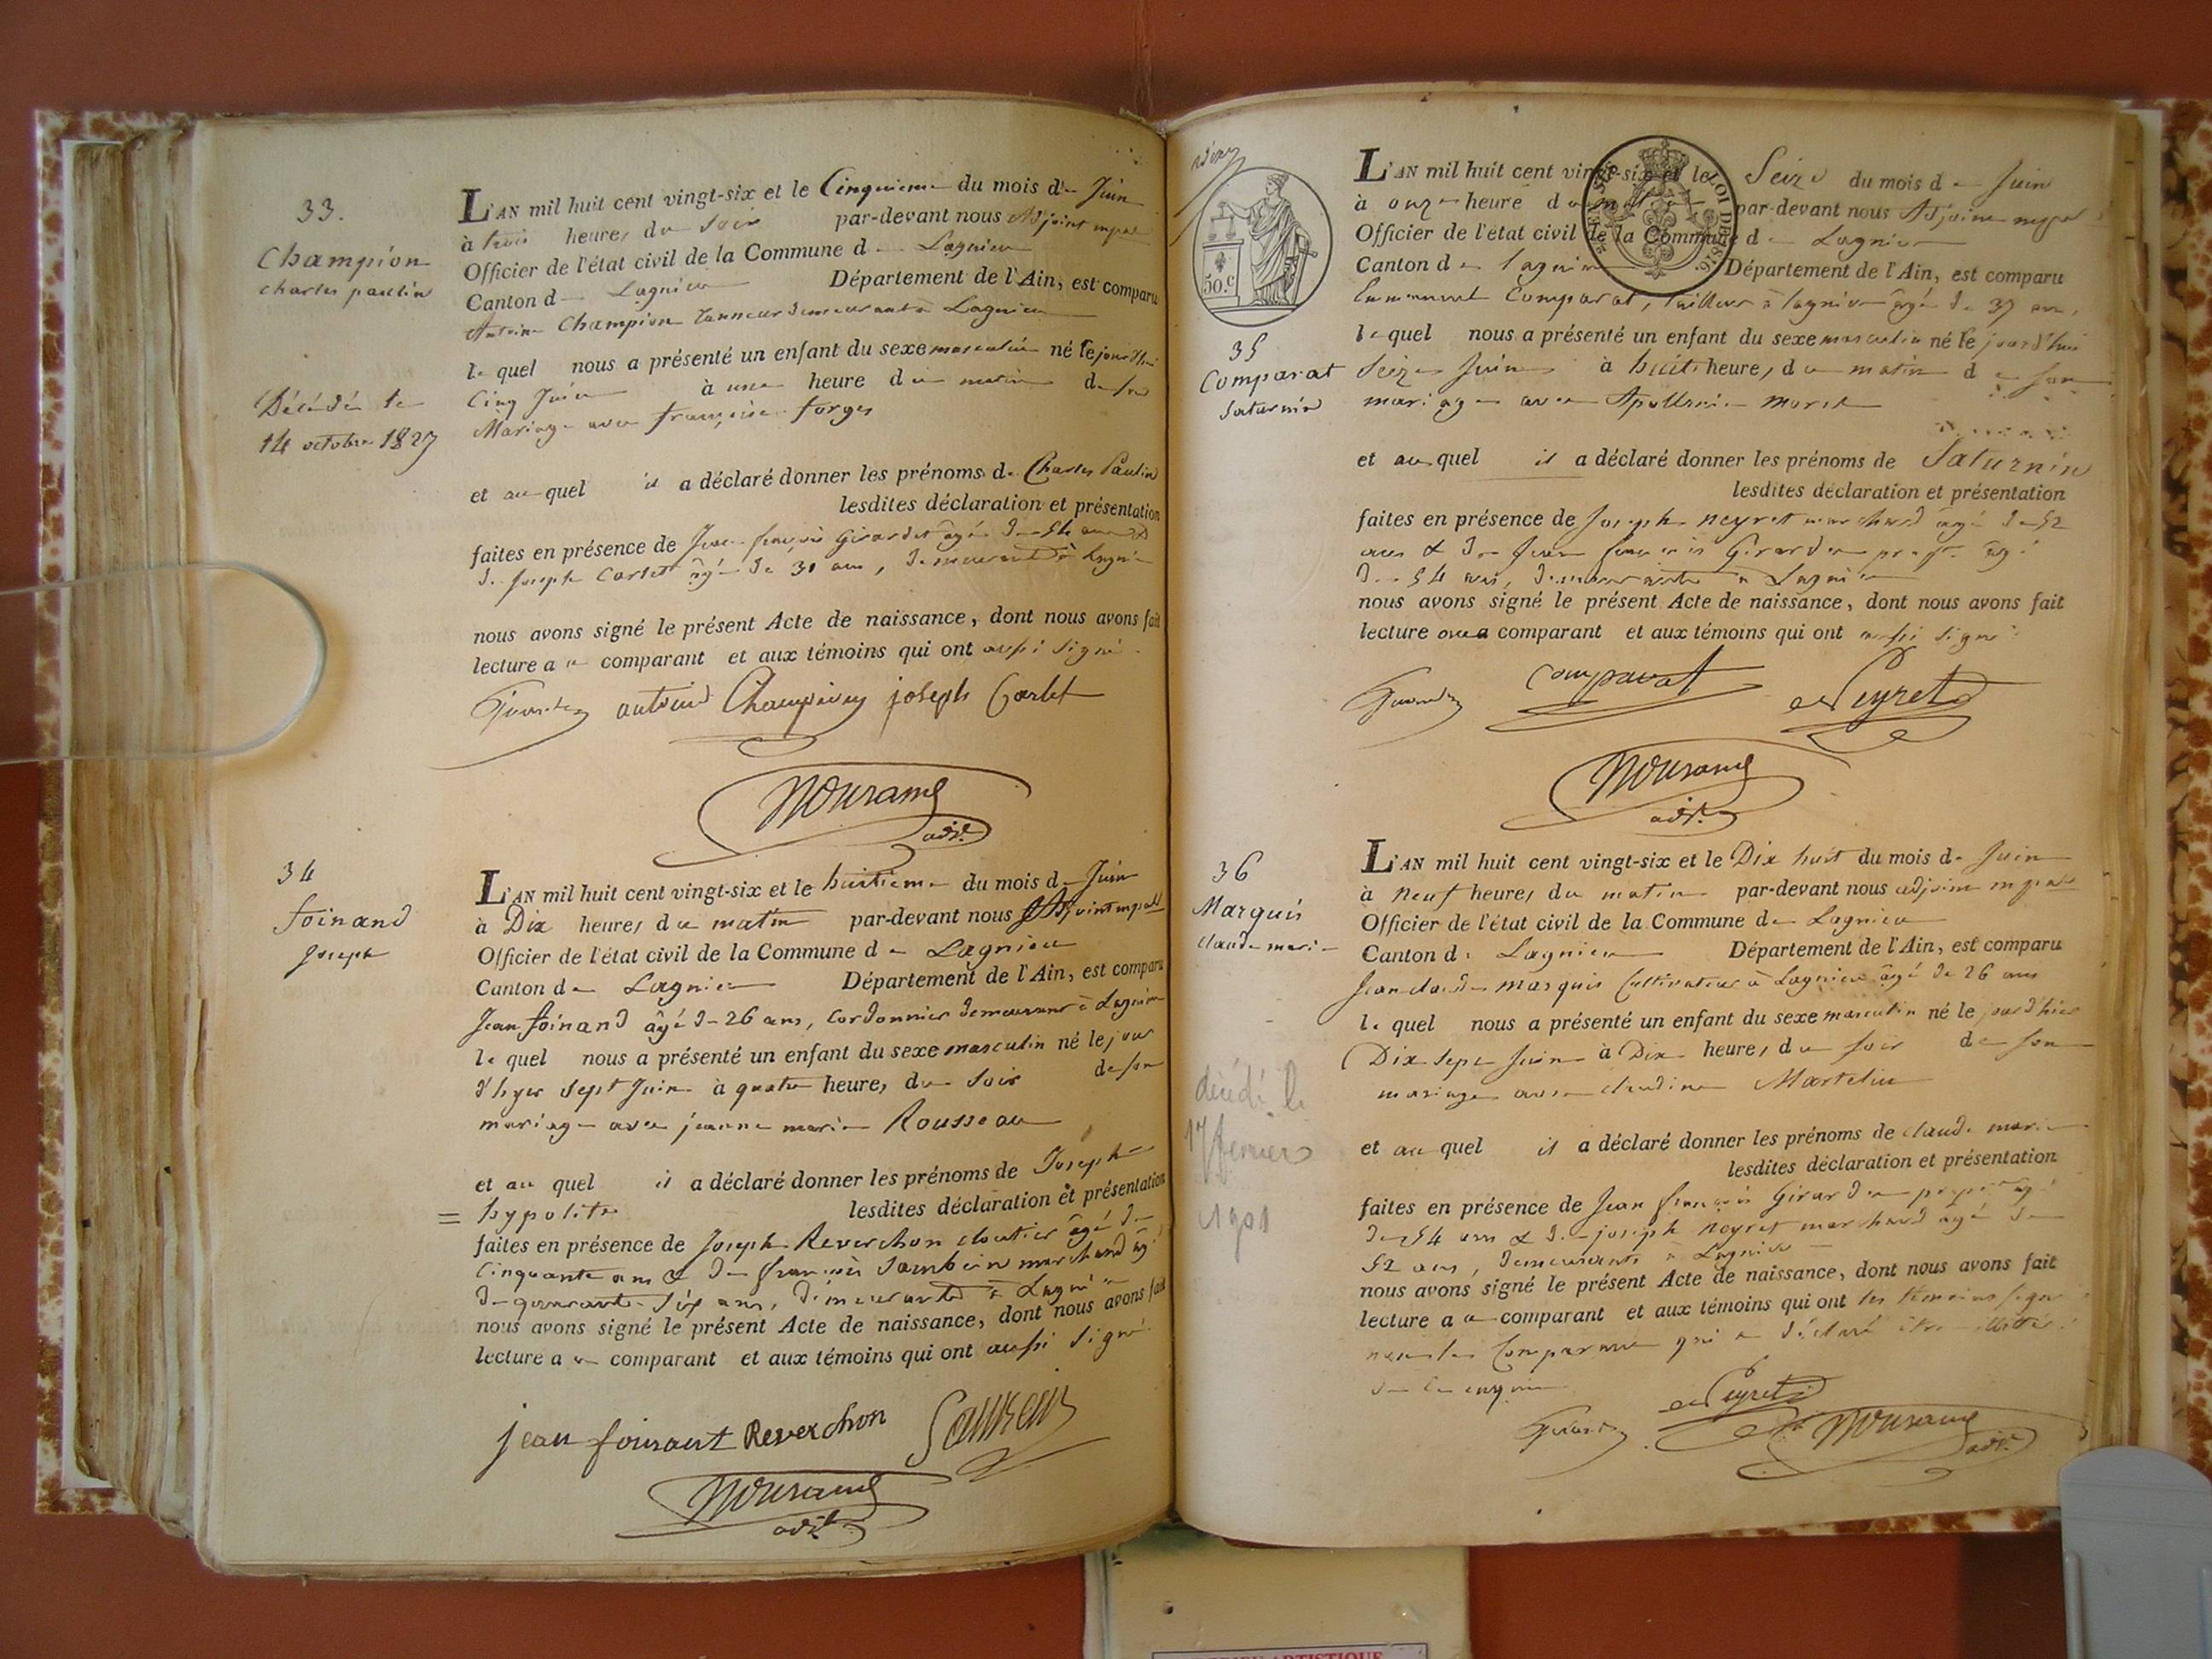 33.
Champion
charles paulin
Décédé le
14 octobre 1827
L'AN mil huit cent vingt-six et le Cinquieme du mois de Juin
à trois heures du soir par-devant nous Adjoint mpal
Officier de l'état civil de la Commune de Lagnieu
Canton de Lagnieu Département de l'Ain, est comparu
Antoine Champion tanneur demeurant à Lagnieu
le quel nous a présenté un enfant du sexe masculin né le jourd'hui
Cinq Juin à une heure du matin de son
Mariage avec françoise forges
et au quel il a déclaré donner les prénoms de Charles Paulin
lesdites déclaration et présentation
faites en présence de Jean françois Girardet âgé de 54 ans et
de Joseph Carlet âgé de 31 ans, demeurant à Lagnieu
nous avons signé le présent Acte de naissance, dont nous avons fait
lecture au comparant et aux témoins qui ont aussi signé
antoine Champion joseph Carlet
adjt
34
foinand
Joseph
L'AN mil huit cent vingt-six et le huitieme du mois de Juin
à Dix heures du matin par-devant nous Adjoint mpal
Officier de l'état civil de la Commune de Lagnieu
Canton de Lagnieu Département de l'Ain, est comparu
Jean foinand âgé de 26 ans, cordonnier demeurant à Lagnieu
le quel nous a présenté un enfant du sexe masculin né le jour
d'hyer sept Juin à quatre heures du soir de son
mariage avec jeanne marie Rousseau
et au quel il a déclaré donner les prénoms de Joseph
= hypolite lesdites déclaration et présentation
faites en présence de Joseph Reverchon cloutier âgé de
Cinquante ans et de françois Sambein marchand âgé
de quarante six ans, demeurants à Lagnieu
nous avons signé le présent Acte de naissance, dont nous avons fait
lecture au comparant et aux témoins qui ont aussi signé
jean foinant Reverchon
adjt
50.c
LOI DE 1816
35
Comparat
Saturnin
L'AN mil huit cent vingt-six et le Seize du mois de Juin
à onze heure du matin par-devant nous Adjoint mpal
Officier de l'état civil de la Commune de Lagnieu
Canton de Lagnieu Département de l'Ain, est comparu
Emmanuel Comparat, tailleur à lagnieu âgé de 37 ans,
le quel nous a présenté un enfant du sexe masculin né le jourd'hui
Seize Juin à huit heures du matin de son
mariage avec Apollonie moret
et au quel il a déclaré donner les prénoms de Saturnin
lesdites déclaration et présentation
faites en présence de Joseph neyret marchand âgé de 52
ans & de Jean françois Girardet propre âgé
de 54 ans, demeurants à Lagnieu
nous avons signé le présent Acte de naissance, dont nous avons fait
lecture au comparant et aux témoins qui ont aussi signé
comparat Neyret
adjt
36
Marquis
claude marie
décédé le
17 février
1901
L'AN mil huit cent vingt-six et le Dix huit du mois de Juin
à neuf heures du matin par-devant nous adjoint mpal
Officier de l'état civil de la Commune de Lagnieu
Canton de Lagnieu Département de l'Ain, est comparu
Jean claude marquis Cultivateur à Lagnieu âgé de 26 ans
le quel nous a présenté un enfant du sexe masculin né le jour d'hier
Dix sept Juin à Dix heures du soir de son
mariage avec claudine Martelin
et au quel il a déclaré donner les prénoms de claude marie
lesdites déclaration et présentation
faites en présence de Jean françois Girardet propre âgé
de 54 ans & de joseph neyret marchand âgé de
52 ans, demeurants à Lagnieu
nous avons signé le présent Acte de naissance, dont nous avons fait
lecture au comparant et aux témoins qui ont les témoins signé
non le Comparant qui a déclaré être illitéré
de ce enquis
Neyret
adjt